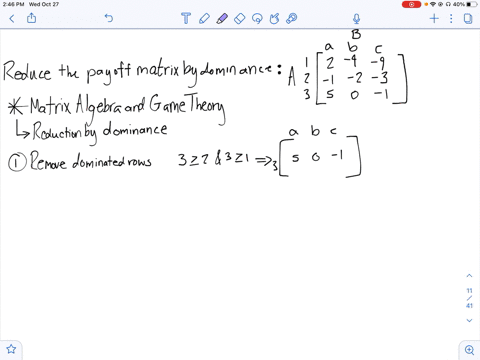 2:46 PM Wed Oct 27
40%
B
a b c
Reduce the payoff matrix by dominance: A 1 [ 2 -4 -9
2 -1 -2 -3
3 5 0 -1 ]
* Matrix Algebra and Game Theory
↳ Reduction by dominance
a b c
① Remove dominated rows 3 ≥ 2 & 3 ≥ 1 ⇒ 3 [ 5 0 -1 ]
11
/
41